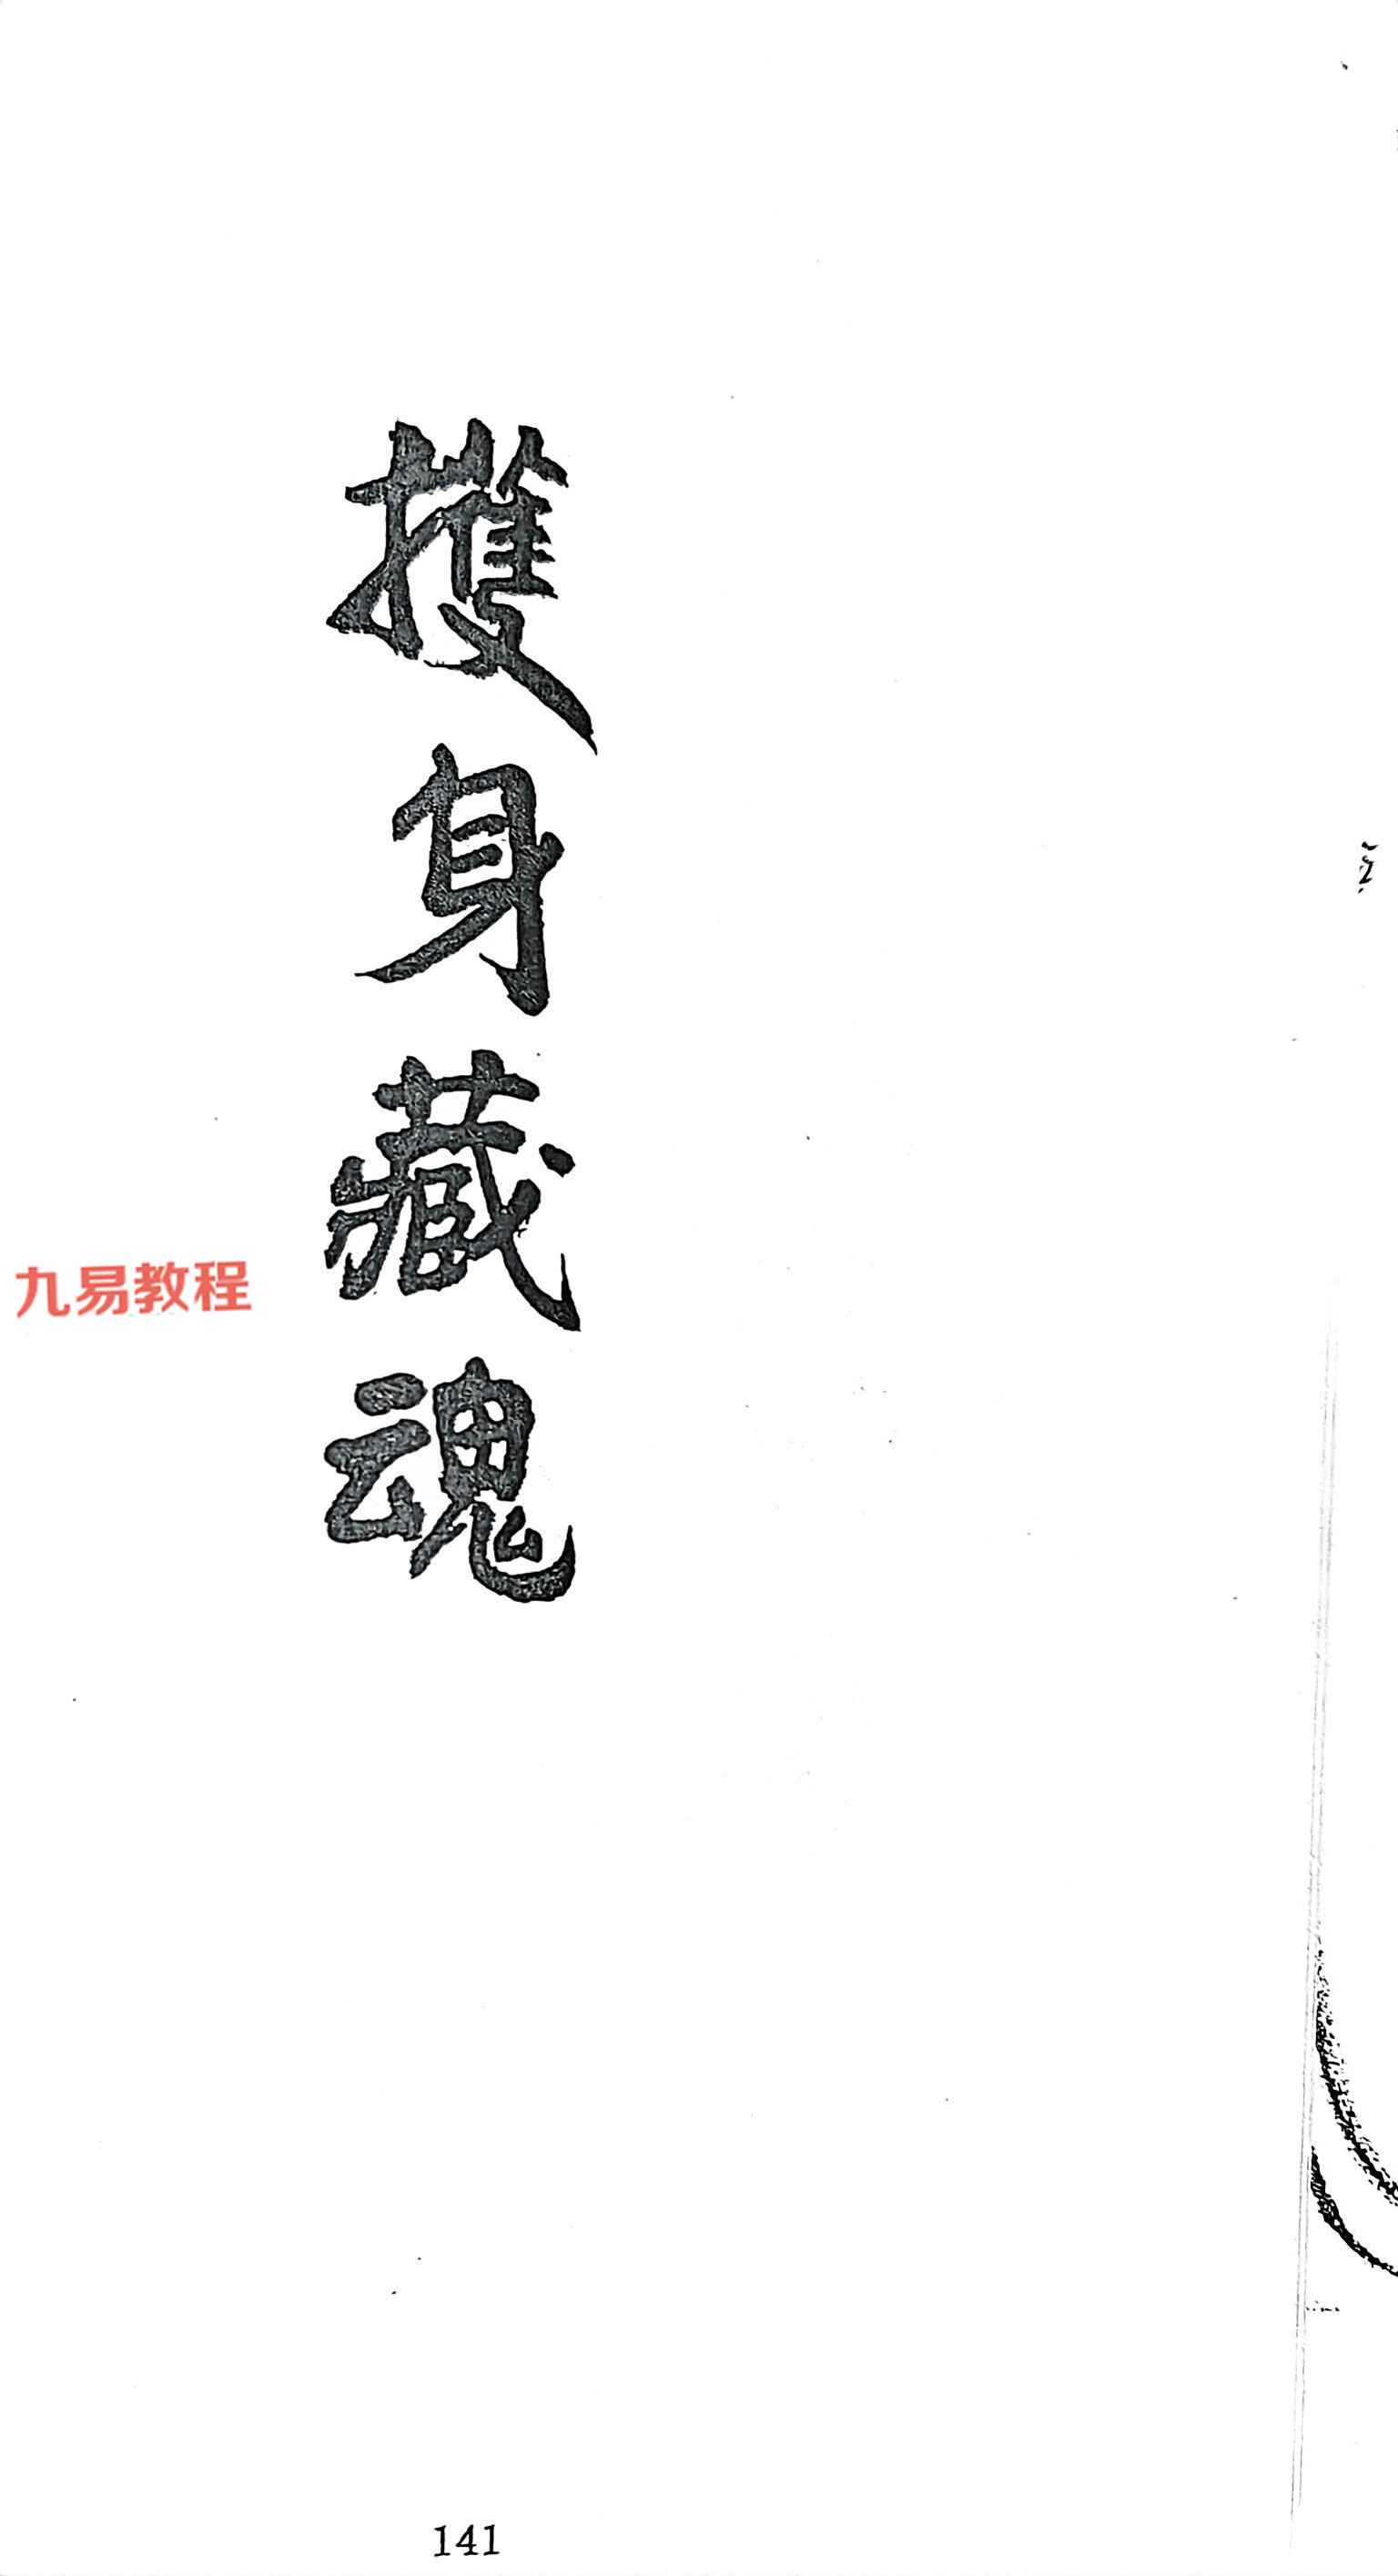 擭身藏魂
九易教程
141